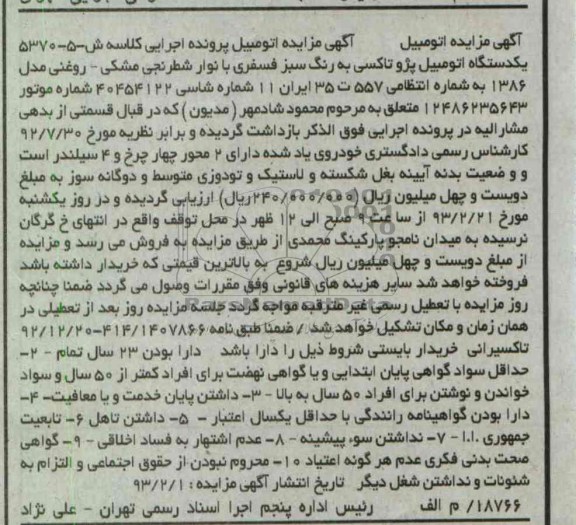 آگهی مزایده اتومبیل آگهی مزایده اتومبیل پرونده اجرایی کلاسه ش-۵-۵۳۷۰
یکدستگاه اتومبیل پژو تاکسی به رنگ سبز فسفری با نوار شطرنجی مشکی - روغنی مدل
۱۳۸۶ به شماره انتظامی ۵۵۷ ت ۳۵ ایران ۱۱ شماره شاسی ۴۰۴۵۴۱۲۲ شماره موتور
۱۲۴۸۶۲۳۵۶۴۳ متعلق به مرحوم محمود شادمهر ( مدیون ) که در قبال قسمتی از بدهی
مشارالیه در پرونده اجرایی فوق الذکر بازداشت گردیده و برابر نظریه مورخ ۹۲/۷/۳۰
کارشناس رسمی دادگستری خودروی یاد شده دارای ۲ محور چهار چرخ و ۴ سیلندر است
و و ضعیت بدنه آیینه بغل شکسته و لاستیک و تودوزی متوسط و دوگانه سوز به مبلغ
دویست و چهل میلیون ریال (۲۴۰/۰۰۰/۰۰۰ریال) ارزیابی گردیده و در روز یکشنبه
مورخ ۹۳/۲/۲۱ از سا عت ۹ صبح الی ۱۲ ظهر در محل توقف واقع در انتهای خ گرگان
نرسیده به میدان نامجو پارکینگ محمدی از طریق مزایده به فروش می رسد و مزایده
از مبلغ دویست و چهل میلیون ریال شروع به بالاترین قیمتی که خریدار داشته باشد
فروخته خواهد شد سایر هزینه های قانونی وفق مقررات وصول می گردد ضمنا چنانچه
روز مزایده با تعطیل رسمی غیر مترقبه مواجه گردد جلسه مزایده روز بعد از تعطیلی در
همان زمان و مکان تشکیل خواهد شد / ضمنا طبق نامه ۴۱۴/۱۴۰۷۸۶۶-۹۲/۱۲/۲۰
تاکسیرانی خریدار بایستی شروط ذیل را دارا باشد دارا بودن ۲۳ سال تمام - ۲-
حداقل سواد گواهی پایان ابتدایی و یا گواهی نهضت برای افراد کمتر از ۵۰ سال و سواد
خواندن و نوشتن برای افراد ۵۰ سال به بالا - ۳- داشتن پایان خدمت و یا معافیت- ۴-
دارا بودن گواهینامه رانندگی با حداقل یکسال اعتبار - ۵- داشتن تاهل ۶- تابعیت
جمهوری .ا.ا - ۷- نداشتن سوء پیشینه - ۸- عدم اشتهار به فساد اخلاقی - ۹- گواهی
صحت بدنی فکری عدم هر گونه اعتیاد ۱۰- محروم نبودن از حقوق اجتماعی و التزام به
شئونات و نداشتن شغل دیگر تاریخ انتشار آگهی مزایده : ۹۳/۲/۱
۱۸۷۶۶/ م الف رئیس اداره پنجم اجرا اسناد رسمی تهران - علی نژاد